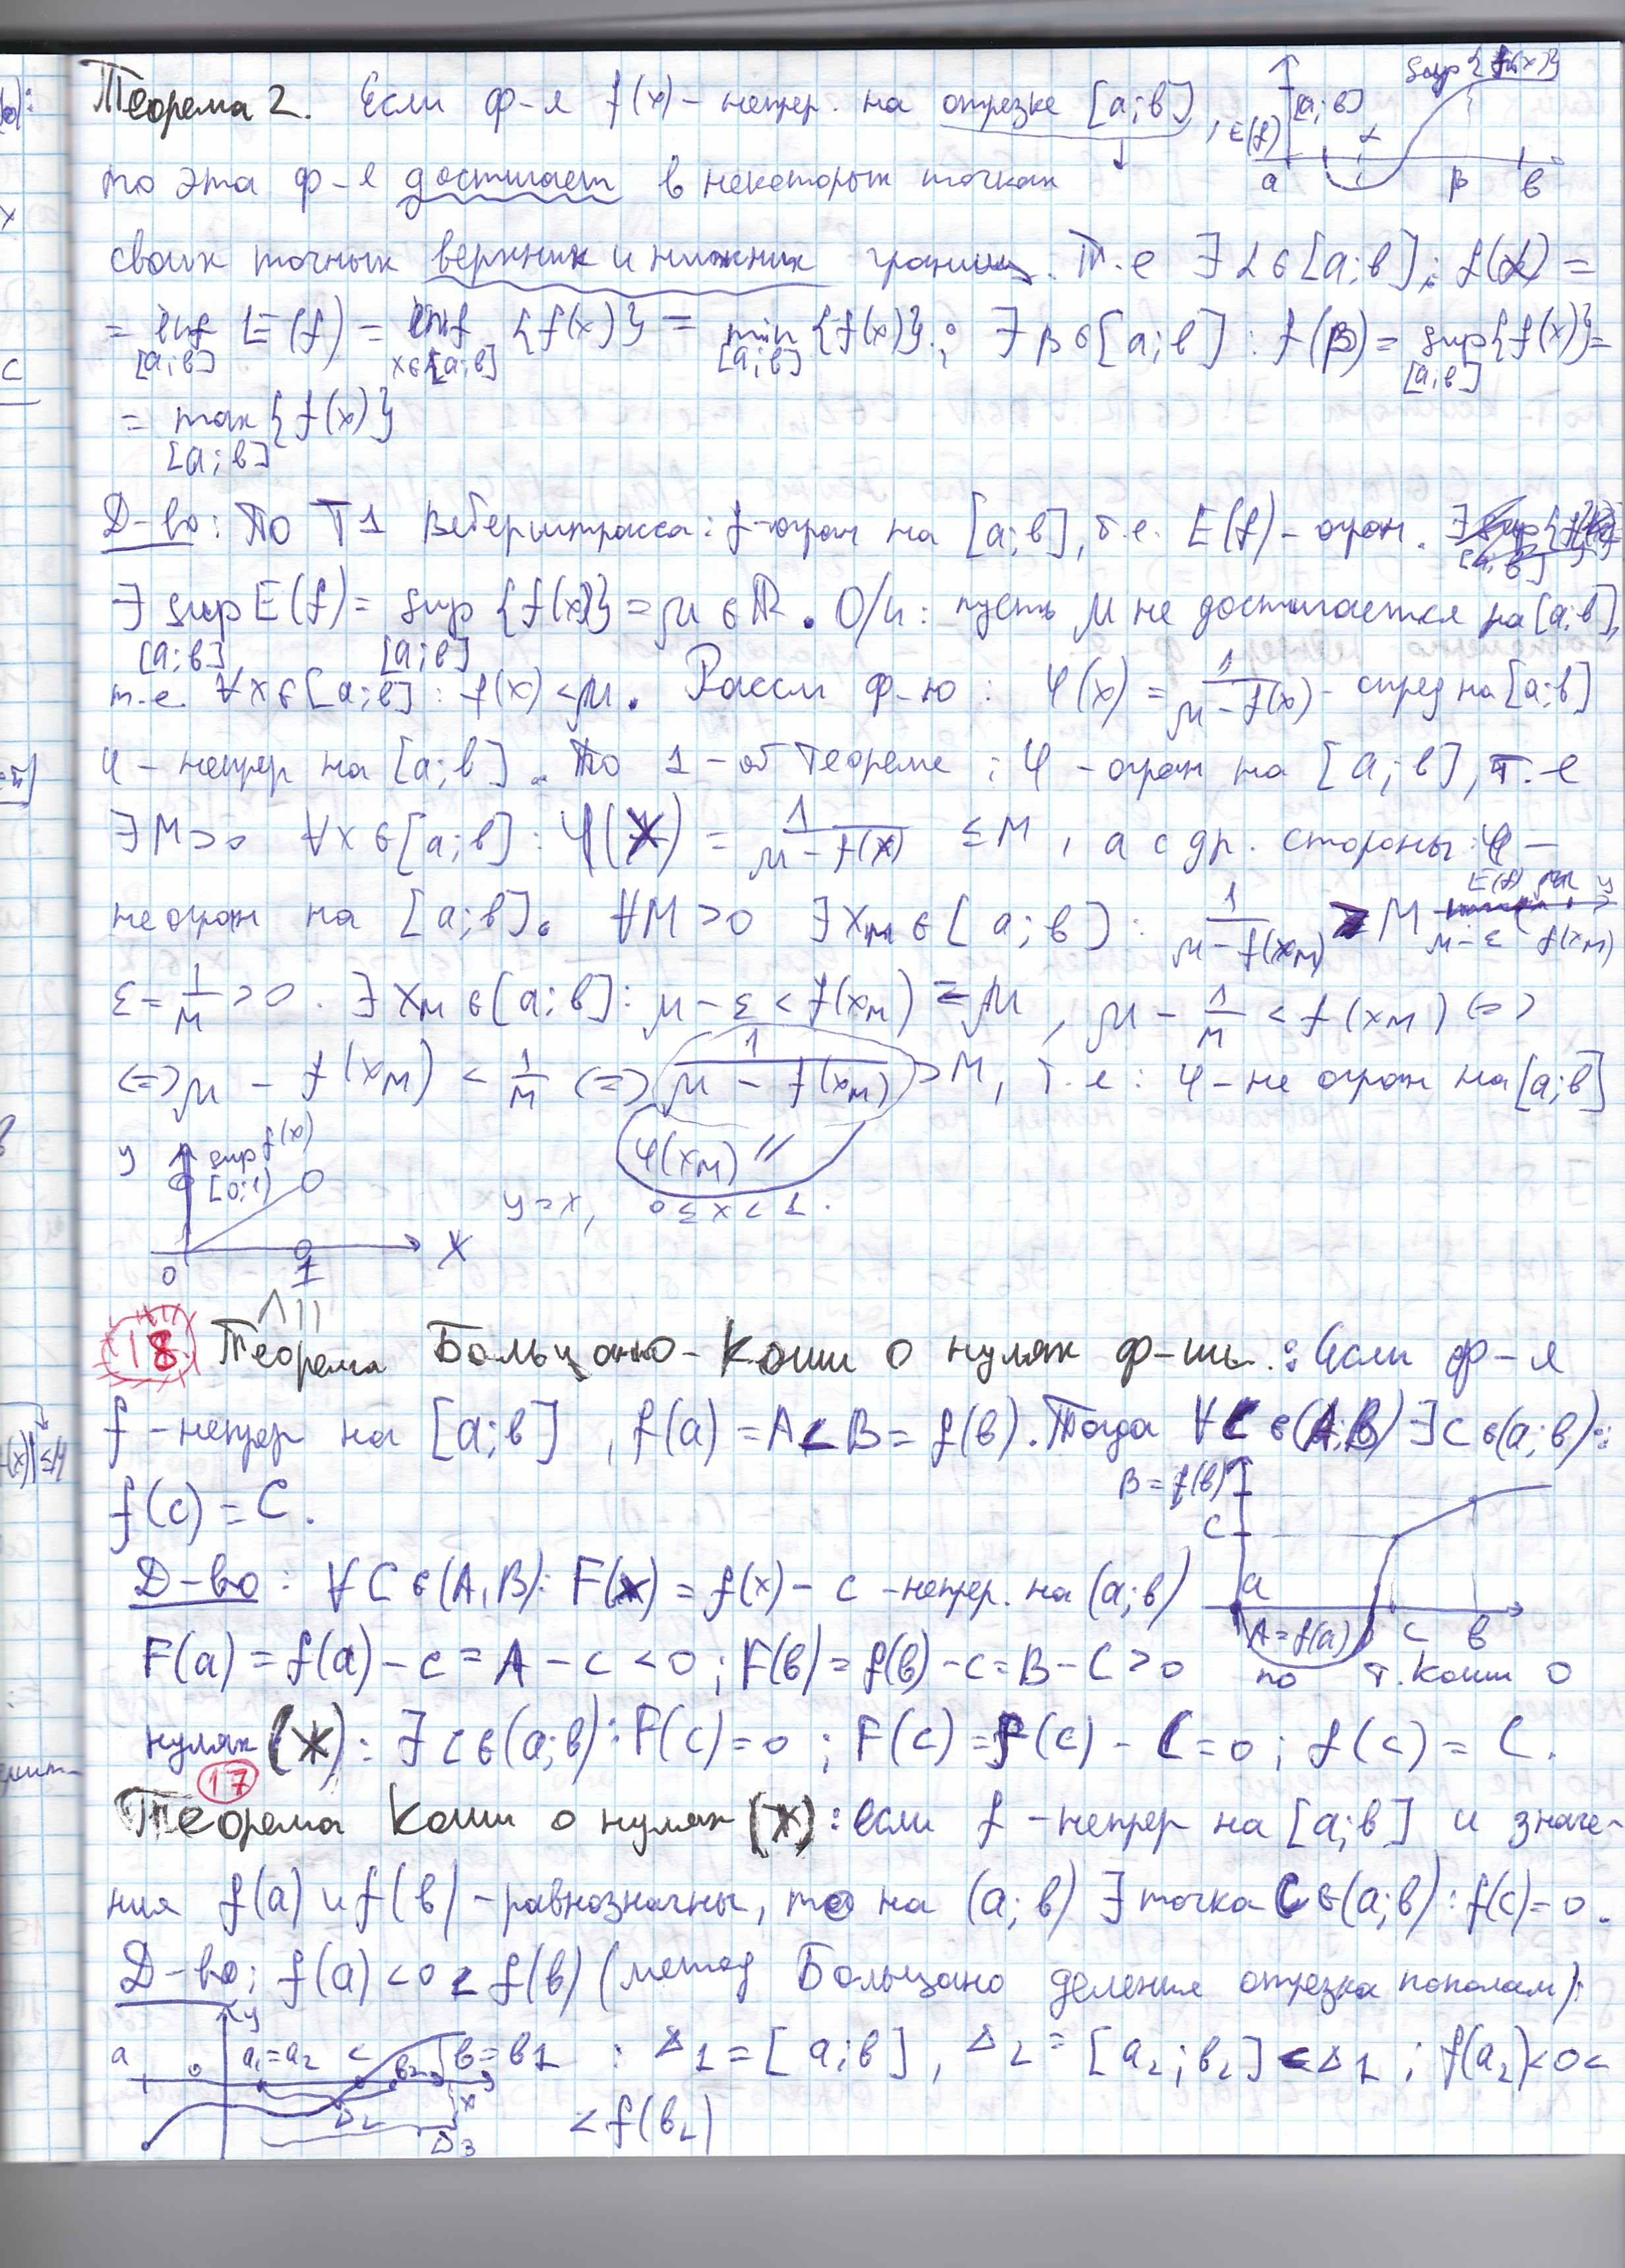 Теорема 2. Если ф-я f(x) – непрер. на отрезке [a;b],
то эта ф-я достигает в некоторых точках
своих точных верхних и нижних границ. Т.е ∃ α ∈ [a;b]: f(α) =
= inf E(f) = inf {f(x)} = min {f(x)}; ∃ β ∈ [a;b] : f(β) = sup{f(x)} =
[a;b] x∈[a;b] [a;b] [a;b]
= max {f(x)}
[a;b]
sup{f(x)}
[a;b]
E(f)
α
a β b
Д-во: По Т1 Вейерштрасса: f-огран на [a;b], т.е. E(f) – огран.
∃ sup E(f) = sup {f(x)} = μ ∈ ℝ. О/п: пусть μ не достигается на [a;b],
[a;b] [a;b]
т.е. ∀x∈[a;b] : f(x) < μ. Рассм ф-ю : φ(x) = 1/(μ – f(x)) – опред на [a;b]
φ – непрер на [a;b]. По 1-ой теореме : φ – огран на [a;b], т.е
∃ M>0 ∀x∈[a;b] : φ(x) = 1/(μ – f(x)) ≤ M, а с др. стороны: φ –
не огран на [a;b]. ∀M>0 ∃ x_M ∈ [a;b] : 1/(μ – f(x_M)) > M
E(f) μ y
μ–ε f(x_M)
ε = 1/M > 0. ∃ x_M ∈ [a;b] : μ – ε < f(x_M) ≤ μ, μ – 1/M < f(x_M) <=>
<=> μ – f(x_M) < 1/M <=> 1/(μ – f(x_M)) > M, т.е : φ – не огран на [a;b]
φ(x_M) //
y
sup f(x)
[0;1)
0 1 X
y = x, 0 ≤ x < 1.
18 Теорема Больцано-Коши о нулях ф-ии.: Если ф-я
f – непрер на [a;b], f(a) = A < B = f(b). Тогда ∀ C ∈ (A;B) ∃ c ∈ (a;b):
f(c) = C.
B = f(b)
C
a
A = f(a) c b
Д-во : ∀ C ∈ (A,B): F(x) = f(x) – c – непрер. на (a;b)
F(a) = f(a) – c = A – c < 0 ; F(b) = f(b) – c = B – C > 0 по т. Коши о
нулях (*) : ∃ c ∈ (a;b) : F(c) = 0 ; F(c) = f(c) – C = 0 ; f(c) = C.
17
Теорема Коши о нулях (*) : если f – непрер на [a;b] и значе-
ния f(a) и f(b) – равнозначны, то на (a;b) ∃ точка C ∈ (a;b) : f(c) = 0.
Д-во: f(a) < 0 < f(b) (метод Больцано деления отрезка пополам)
: Δ1 = [a;b], Δ2 = [a2;b2] ⊂ Δ1 ; f(a2) < 0 <
< f(b2)
y
a 0 a1=a2 c b2 b=b1
x
Δ2
Δ3